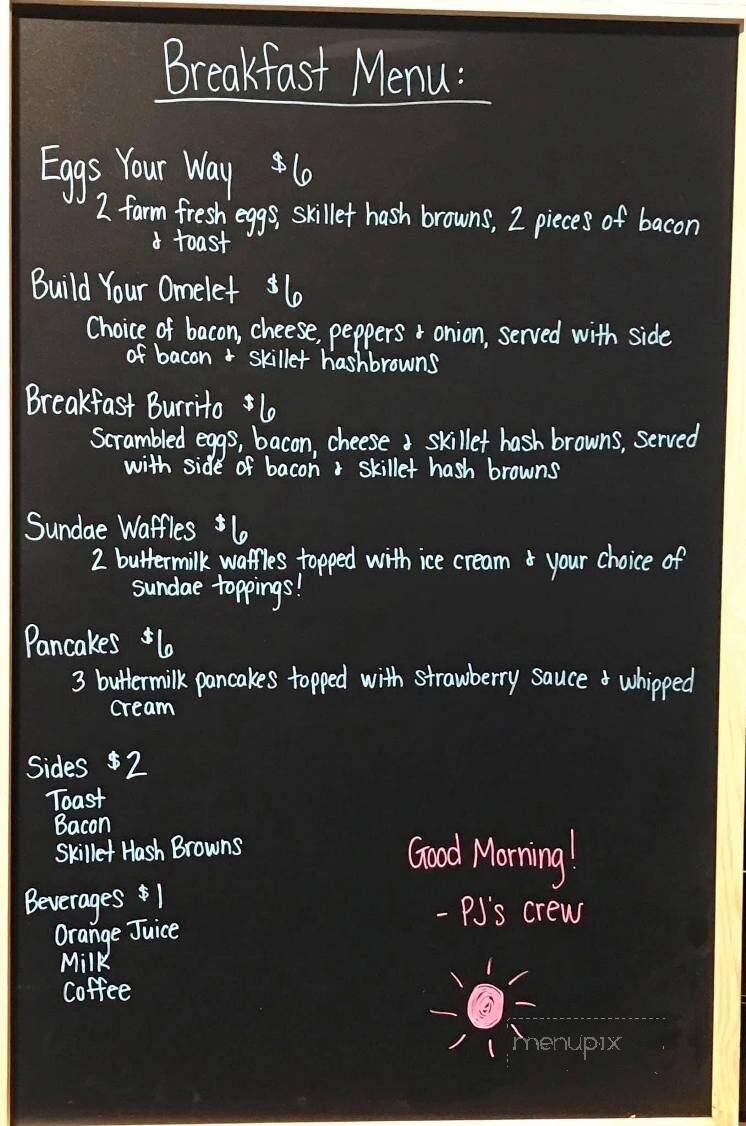 Breakfast Menu:
Eggs Your Way $6
2 farm fresh eggs, skillet hash browns, 2 pieces of bacon
& toast
Build Your Omelet $6
Choice of bacon, cheese, peppers & onion, served with side
of bacon & skillet hashbrowns
Breakfast Burrito $6
Scrambled eggs, bacon, cheese & skillet hash browns, served
with side of bacon & skillet hash browns
Sundae Waffles $6
2 buttermilk waffles topped with ice cream & your choice of
sundae toppings!
Pancakes $6
3 buttermilk pancakes topped with strawberry sauce & whipped
cream
Sides $2
Toast
Bacon
Skillet Hash Browns
Beverages $1
Orange Juice
Milk
Coffee
Good Morning!
- PJ's crew
menupix